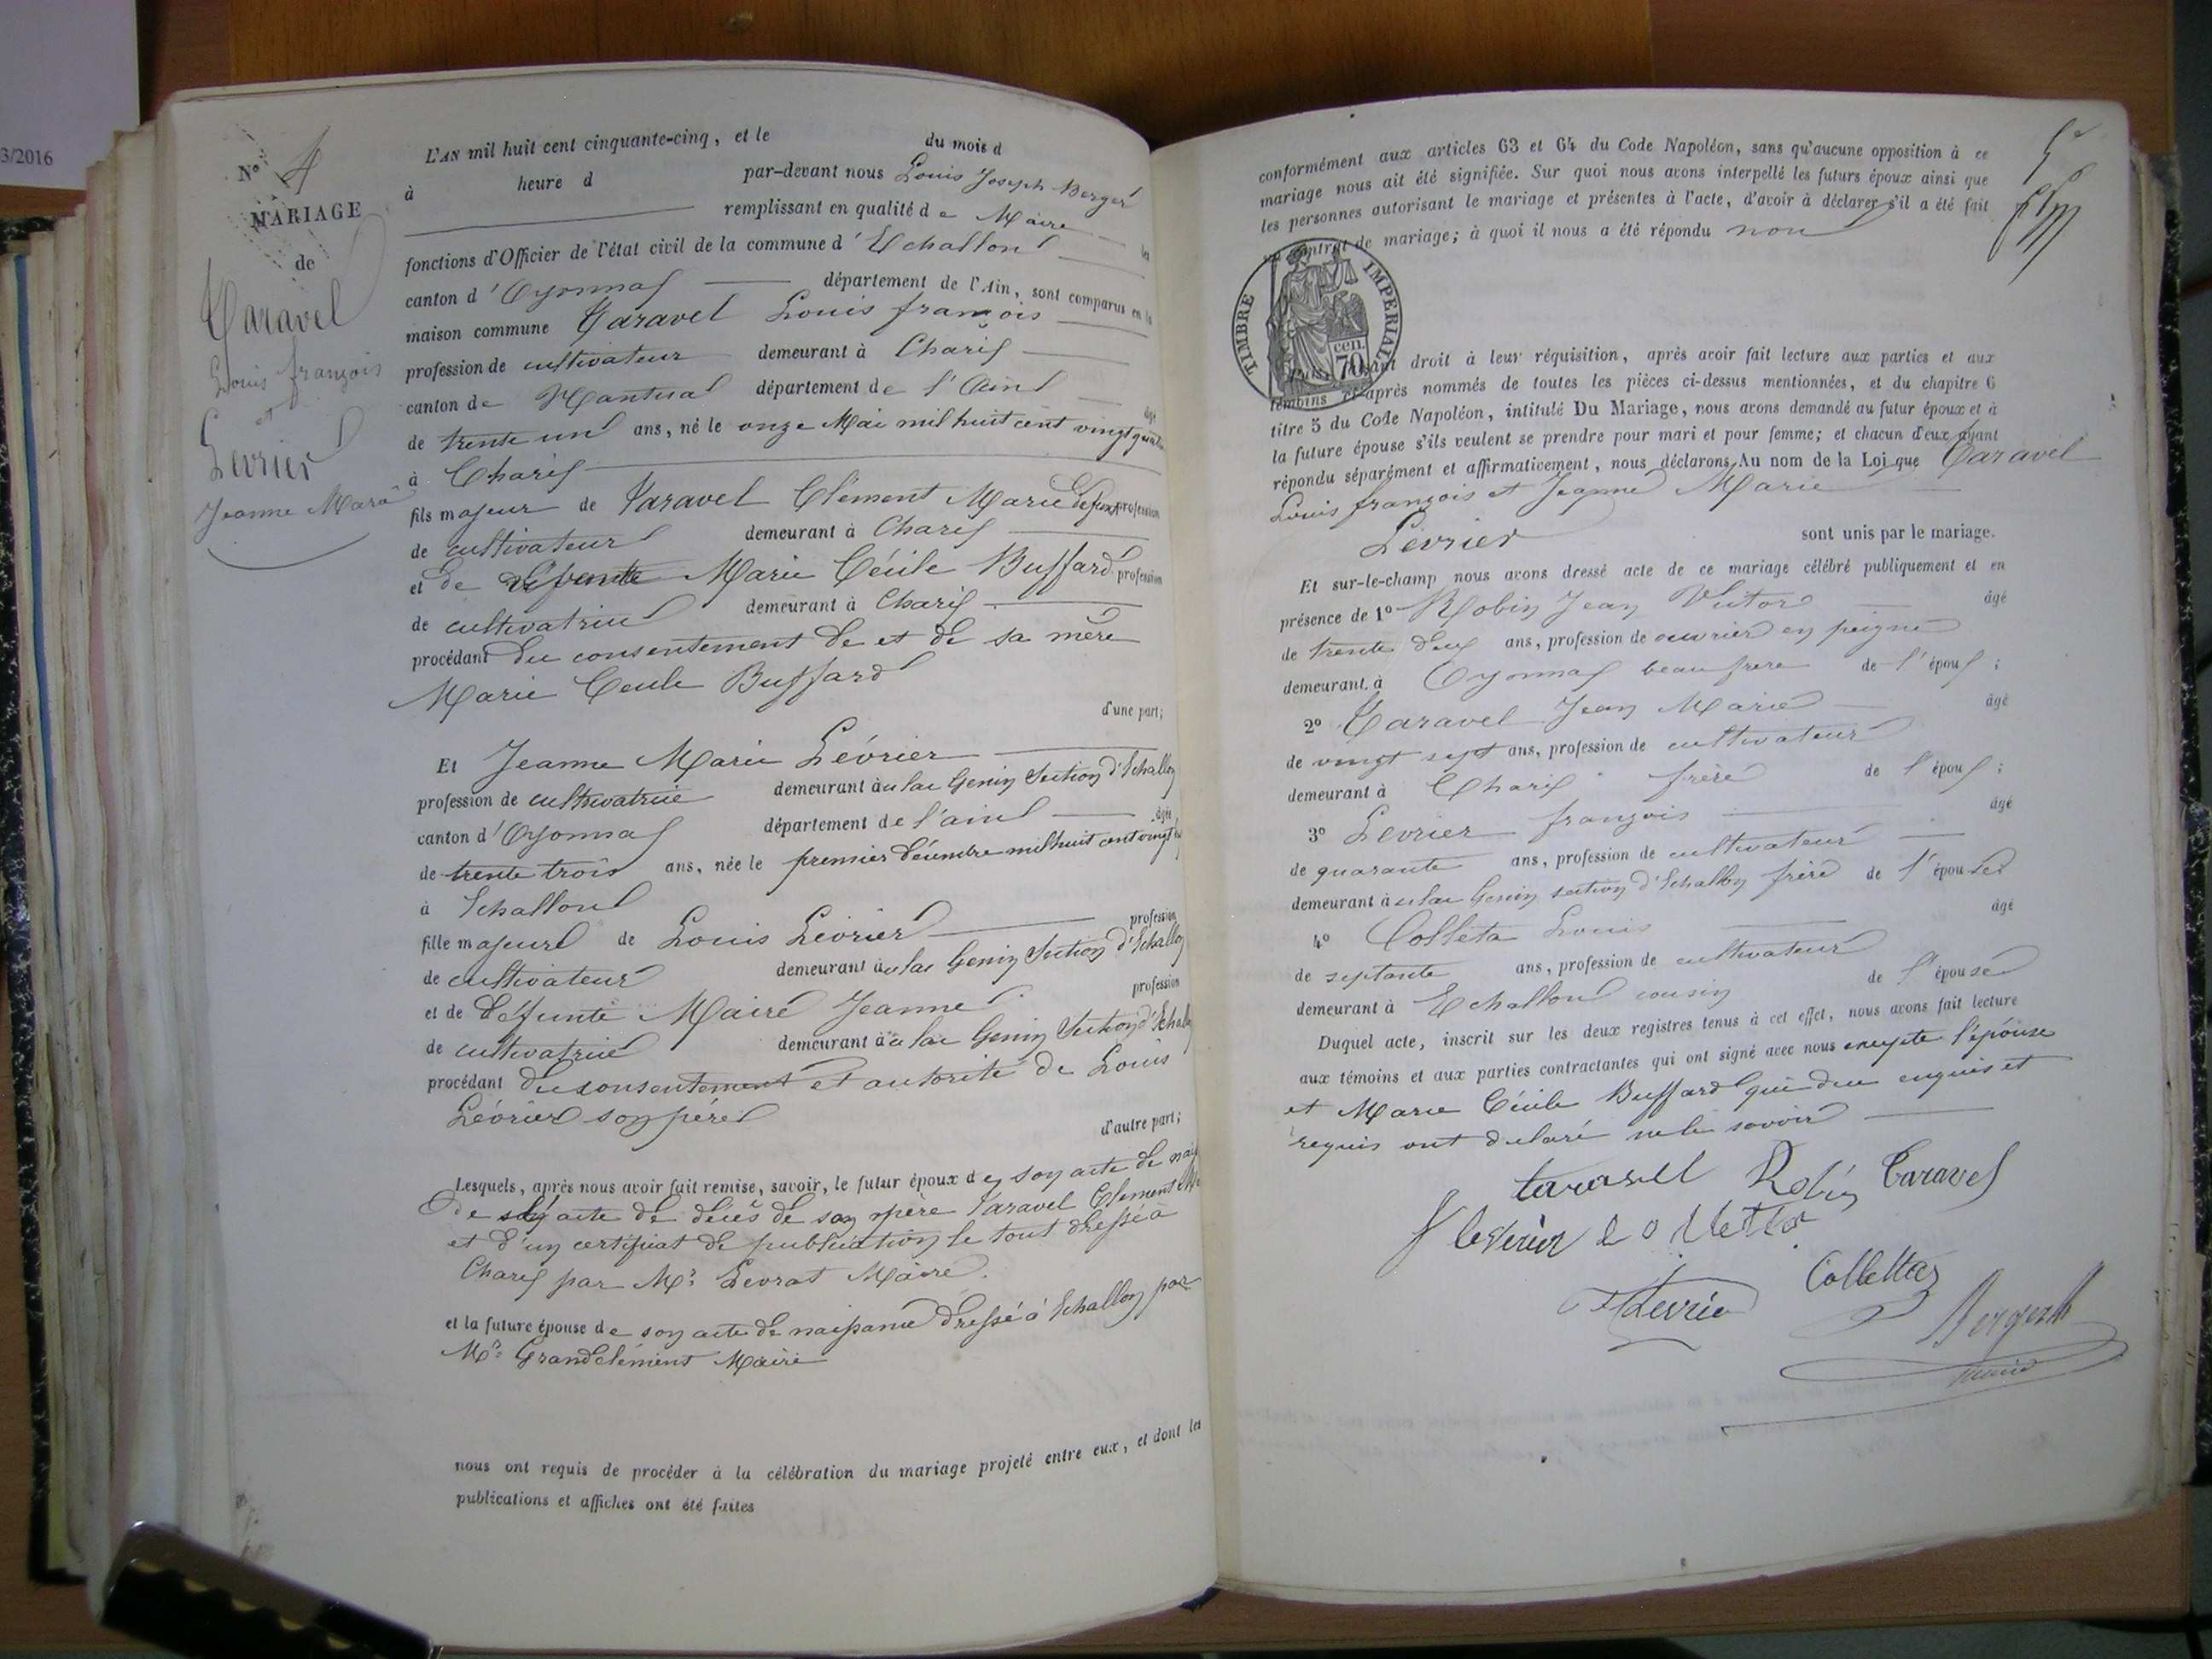 3/2016
N° 4
MARIAGE
de
Taravel
Louis françois
et
Levrier
Jeanne Marie
L'AN mil huit cent cinquante-cinq, et le du mois d
à heure d par-devant nous Louis Joseph Berger
remplissant en qualité de Maire les
fonctions d'Officier de l'état civil de la commune d'Echallon
canton d'Oyonnax département de l'Ain, sont comparus en la
maison commune Taravel Louis françois
profession de cultivateur demeurant à Charix
canton de Nantua département de l'Ain âgé
de trente un ans, né le onze Mai mil huit cent vingt quatre
à Charix
fils majeur de Taravel Clément Marie défunt profession
de cultivateur demeurant à Charix
et de défunte Marie Cécile Buffard profession
de cultivatrice demeurant à Charix
procédant du consentement de et de sa mère
Marie Cecile Buffard
d'une part;
Et Jeanne Marie Lévrier
profession de cultivatrice demeurant au lac Genin Section d'Echallon
canton d'Oyonnax département de l'ain âgée
de trente trois ans, née le premier décembre mil huit cent vingt
à Echallon
fille majeure de Louis Lévrier profession
de cultivateur demeurant au lac Genin Section d'Echallon
et de défunte Maire Jeanne profession
de cultivatrice demeurant au lac Genin Section d'Echallon
procédant du consentement et autorité de Louis
Lévrier son père
d'autre part;
Lesquels, après nous avoir fait remise, savoir, le futur époux de son acte de
de acte de décès de son père Taravel Clement
et d'un certificat de publication le tout dressé à
Charix par Mr Levrat Maire.
et la future épouse de son acte de naissance dressé à Echallon par
Mr Grandclément Maire
nous ont requis de procéder à la célébration du mariage projeté entre eux, et dont les
publications et affiches ont été faites
conformément aux articles 63 et 64 du Code Napoléon, sans qu'aucune opposition à ce
mariage nous ait été signifiée. Sur quoi nous avons interpellé les futurs époux ainsi que
les personnes autorisant le mariage et présentes à l'acte, d'avoir à déclarer s'il a été fait
un contrat de mariage; à quoi il nous a été répondu non
TIMBRE IMPERIAL
cen.
70
droit à leur réquisition, après avoir fait lecture aux parties et aux
témoins ci-après nommés de toutes les pièces ci-dessus mentionnées, et du chapitre 6
titre 5 du Code Napoléon, intitulé Du Mariage, nous avons demandé au futur époux et à
la future épouse s'ils veulent se prendre pour mari et pour femme; et chacun d'eux ayant
répondu séparément et affirmativement, nous déclarons Au nom de la Loi que Taravel
Louis françois et Jeanne Marie
Levrier sont unis par le mariage.
Et sur-le-champ nous avons dressé acte de ce mariage célébré publiquement et en
présence de 1° Robin Jean Victor âgé
de trente deux ans, profession de ouvrier en peigne
demeurant à Oyonnax beau frere de l'époux;
2° Taravel Jean Marie âgé
de vingt sept ans, profession de cultivateur
demeurant à Charix frère de l'époux;
3° Levrier françois âgé
de quarante ans, profession de cultivateur
demeurant au lac Genin section d'Echallon frère de l'épouse
4° Colleta Louis âgé
de septante ans, profession de cultivateur
demeurant à Echallon cousin de l'épouse
Duquel acte, inscrit sur les deux registres tenus à cet effet, nous avons fait lecture
aux témoins et aux parties contractantes qui ont signé avec nous excepte l'épouse
et Marie Cécile Buffard qui de ce enquis et
requis ont déclaré ne le savoir
taravel Robin Taravel
Collettaz
Levrier
Berger
maire